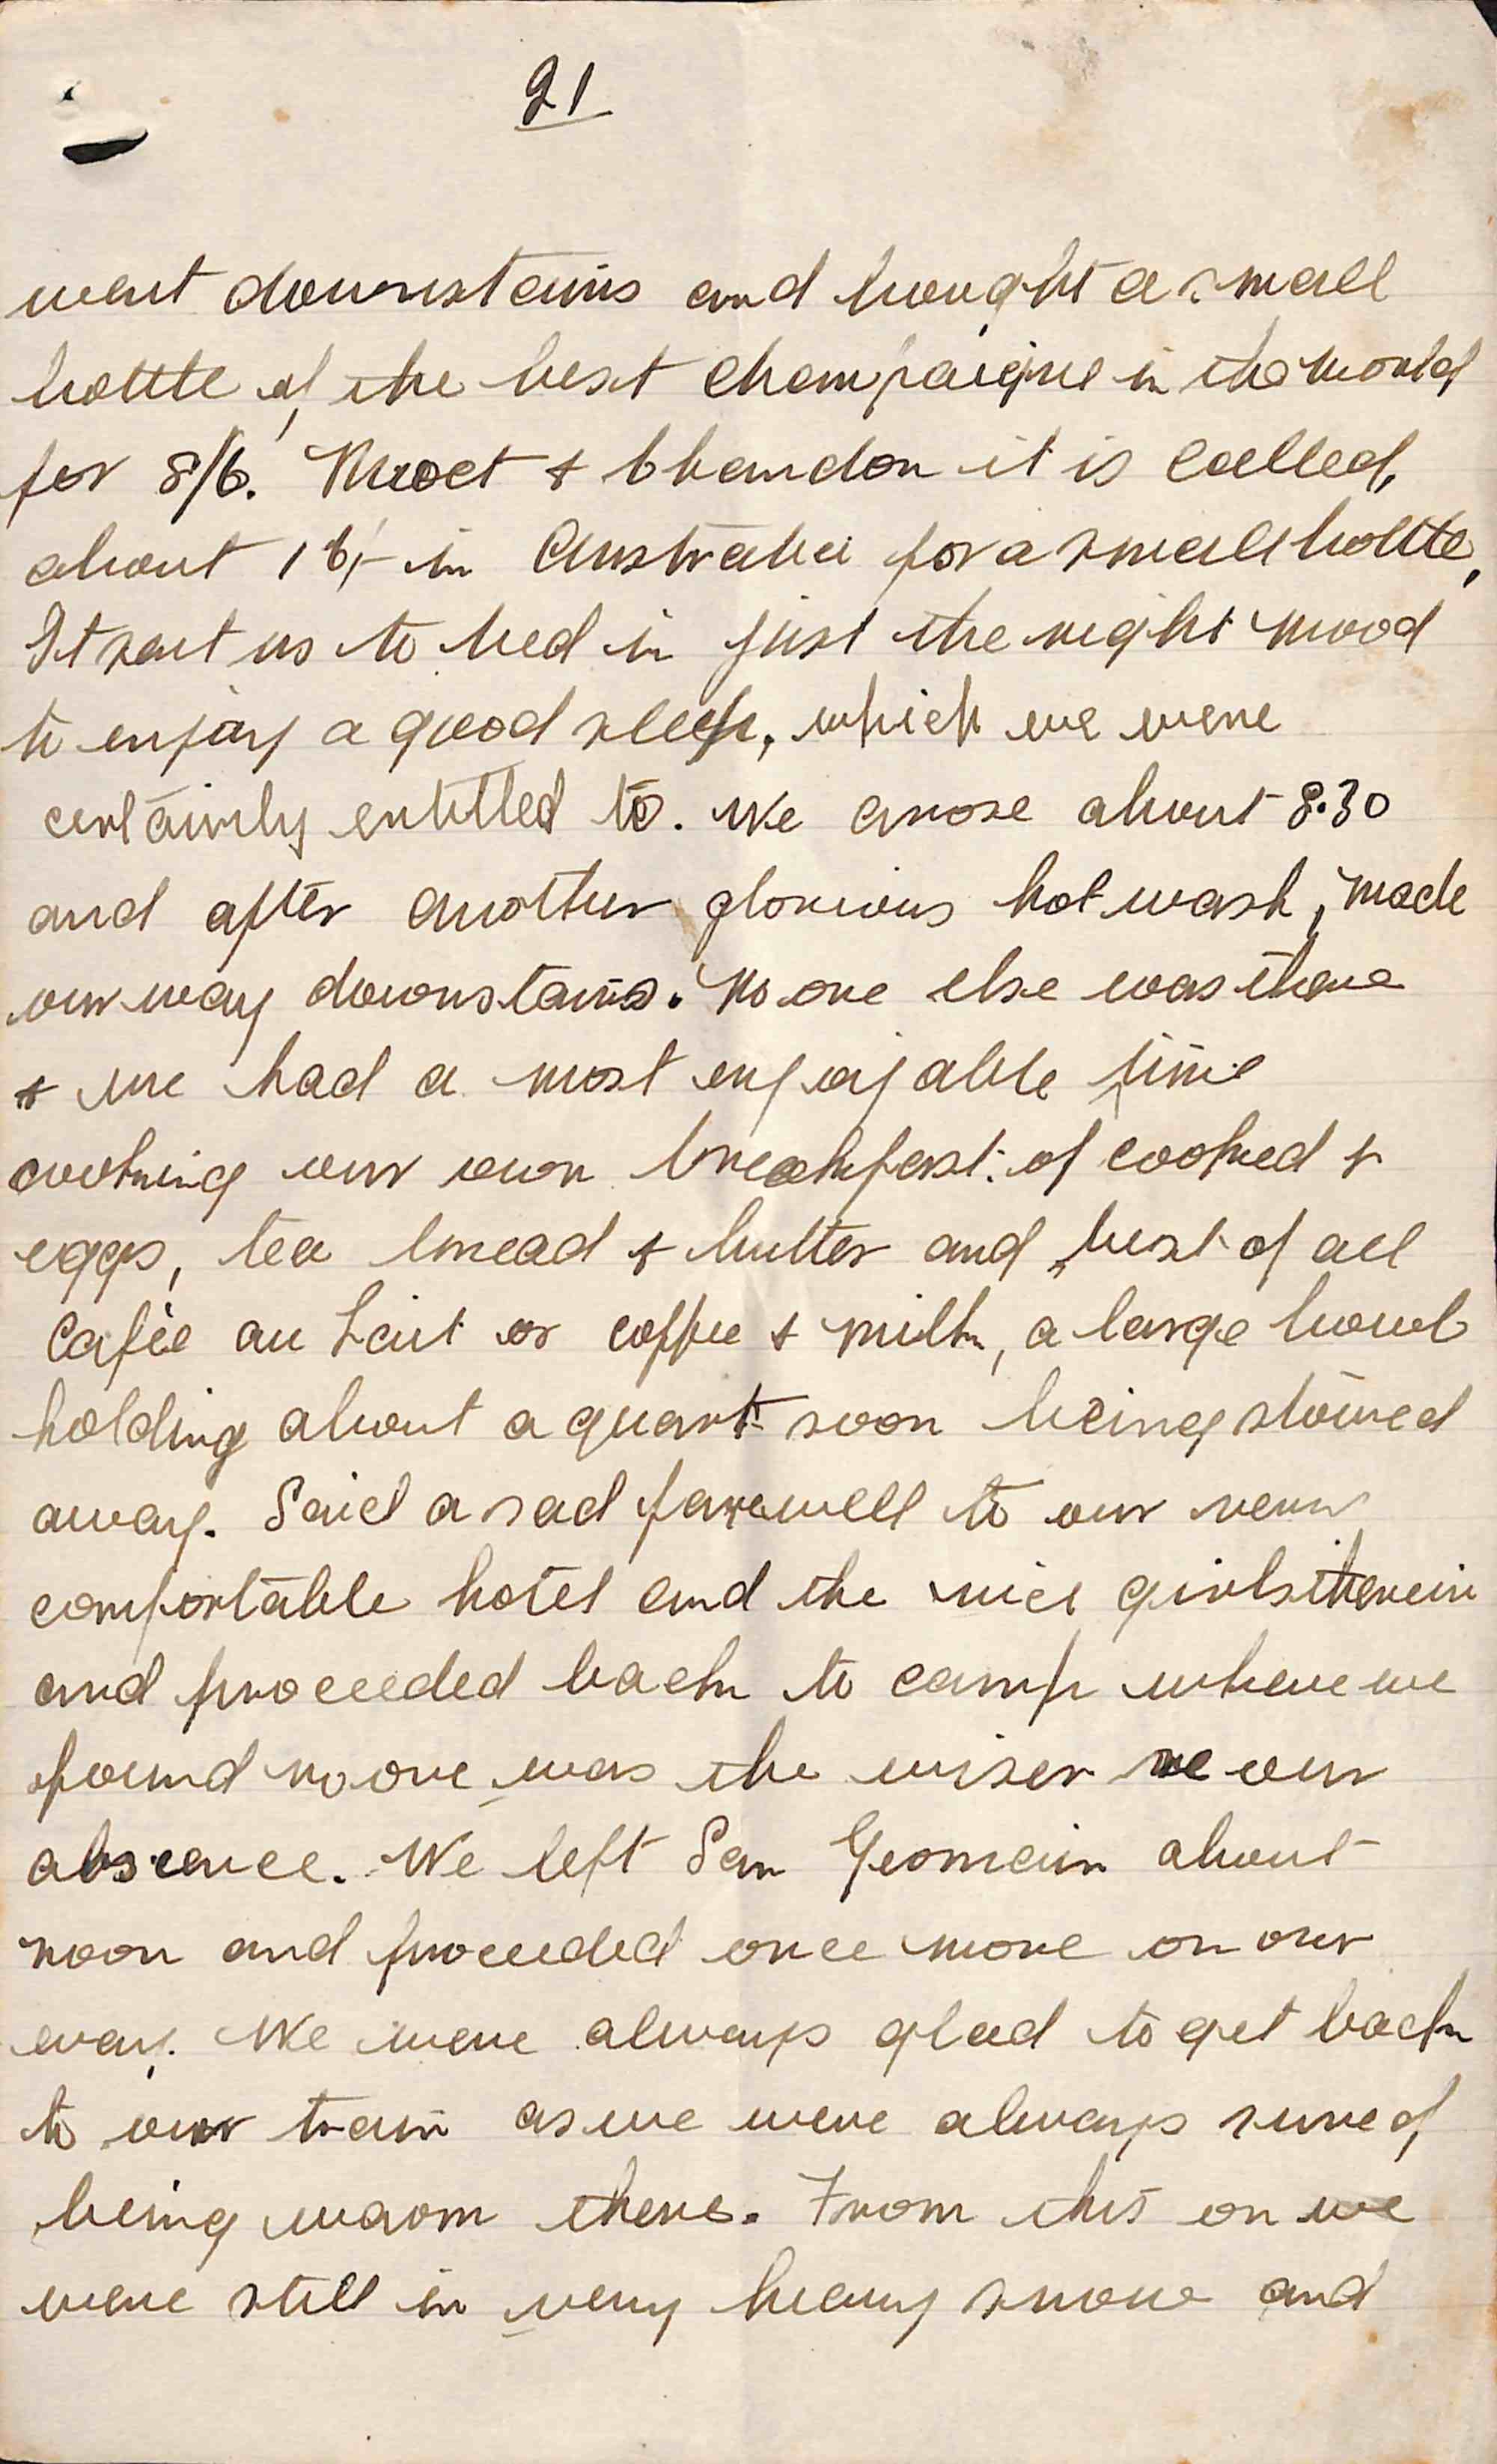 21
went downstairs and bought a small
bottle of the best Champaigne in the world
for 8/6. Moet & Chandon it is called,
about 16/- in Australia for a small bottle,
It sent us to bed in just the right mood
to enjoy a good sleep, which we were
certainly entitled to. We arose about 8.30
and after another glorious hot wash, made
our way downstairs. No one else was there
& we had a most enjoyable time
cooking our own breakfast of cooked &
eggs, tea bread & butter and best of all
Cafèe au Lait or coffee & milk, a large bowl
holding about a quart soon being stowed
away. Said a sad farewell to our very
comfortable hotel and the nice girls therein
and proceeded back to camp where we
found no one was the wiser re our
absence. We left San Germain about
noon and proceeded once more on our
way. We were always glad to get back
to our train as we were always sure of
being warm there. From this on we
were still in very heavy snow and